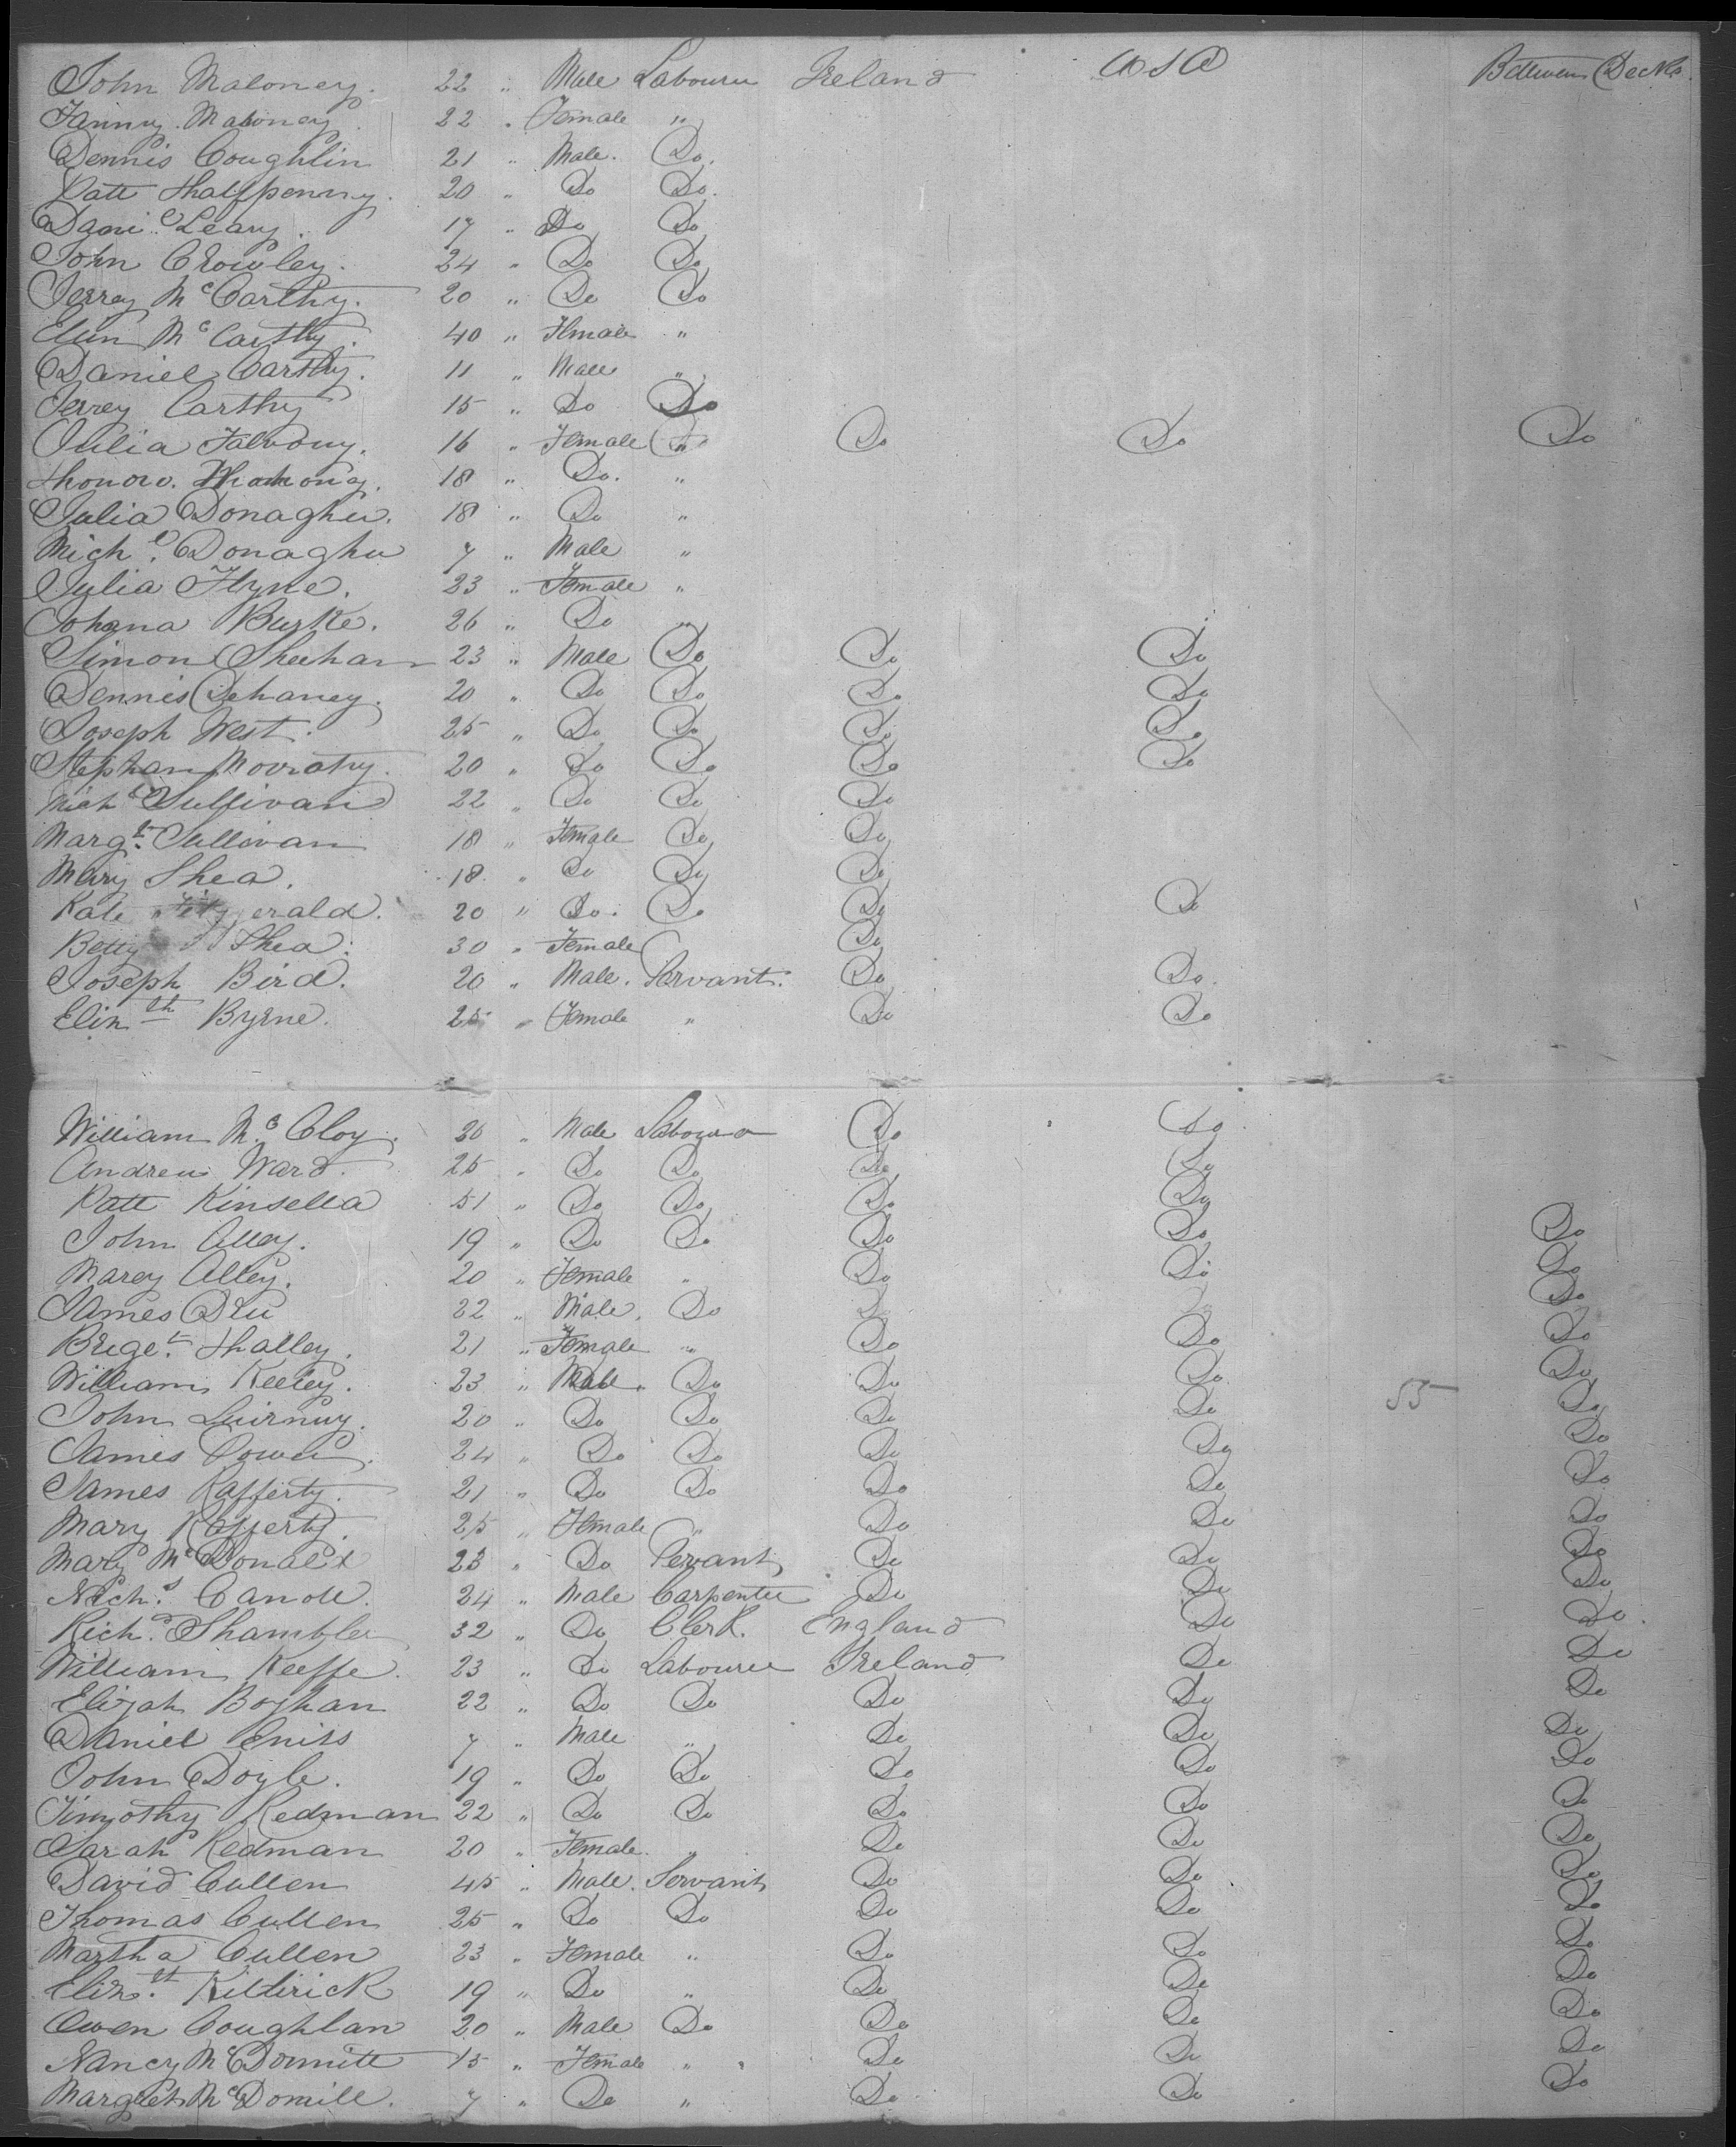 John Maloney. 22 " Male Labourer Ireland USA Between Decks.
Fanny Maloney. 22 " Female "
Dennis Coughlin 21 " Male. Do.
Patt Halfpenny. 20 " Do Do.
Danl. Leary. 17 " Do Do
John Crowley. 24 " Do Do
Jerrey McCarthy. 20 " Do Do
Elen McCarthy. 40 " Female "
Daniel Carthy. 11 " Male "
Jerrey Carthy 15 " Do Do
Julia 16 " Female " Do Do Do
18 " Do. "
Julia Donaghue. 18 " Do "
Michl. Donaghu 7 " Male "
Julia Flyne. 23 " Female "
Johana Burke. 26 " Do "
Simon Sheehan 23 " Male Do Do Do
Dennis Dehaney. 20 " Do Do Do Do
Joseph West. 25 " Do Do Do Do
Stephan 20 " Do Do Do Do
Michl Sullivan 22 " Do Do Do
Margt. Sullivan 18 " Female Do Do
Mary Shea. 18 " Do Do Do
Kate Fitzgerald. 20 " Do. Do Do Do
Betty Shea. 30 " Female Do
Joseph Bird. 20 " Male. Servant. Do Do.
Elizth Byrne. 25 " Female " Do Do
William McCloy. 20 " Male Labourer Do Do
Andrew Ward. 25 " Do Do Do Do
Patt Kinsella 51 " Do Do Do Do
John Alley. 19 " Do Do Do Do Do
Marey Alley. 20 " Female " Do Do Do
James Dru 22 " Male. Do Do Do Do
Briget. Halley. 21 " Female " Do Do Do
William Keeley. 23 " Male. Do Do Do Do
John 20 " Do Do Do Do 55 Do
James Power. 24 " Do Do Do Do Do
James Rafferty. 21 " Do Do Do Do Do
Mary Rafferty. 25 " Female " Do Do Do
Mary McDonald 23 " Do Servant Do Do Do
Nichs. Carroll. 24 " Male Carpenter Do Do Do
Richd. Shambler 32 " Do Clerk. England Do Do.
William Keeffe. 23 " Do Labourer Ireland Do Do
Elizah Boghan 22 " Do Do Do Do Do
Daniel Eniss 7 " Male " Do Do Do
John Doyle. 19 " Do Do Do Do Do
Timothy Redman 22 " Do Do Do Do Do
Sarah Redman 20 " Female. " Do Do Do
David Cullen 45 " Male. Servant Do Do Do
Thomas Cullen 25 " Do Do Do Do Do
Martha Cullen 23 " Female " Do Do Do
Elizth. Kilderick 19 " Do " Do Do Do
Owen Coughlan 20 " Male Do Do Do Do
Nancy McDomitt 15 " Female " Do Do Do
Margaet McDomill. 7 " Do " Do Do Do